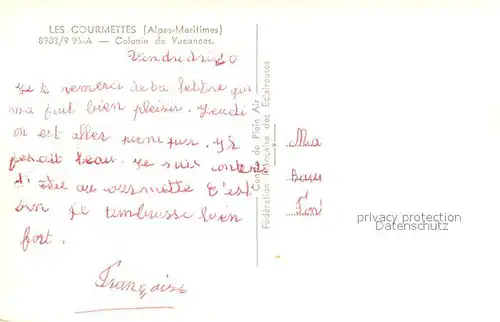 LES COURMETTES (Alpes-Maritimes)
8903/9 95-A — Colonie de Vacances.
Vendredi 20
Je te remerci de ta lettre qui
ma fait bien plaisir. Jeudi
on est aller pique nique. Il
fesait beau. Je suis contente
d'etre au courmette c'est
bien je t'embrasse bien
fort.
Françoise
Centre de Plein Air
Fédération Française des Eclaireuses
Ma
privacy protection
Datenschutz